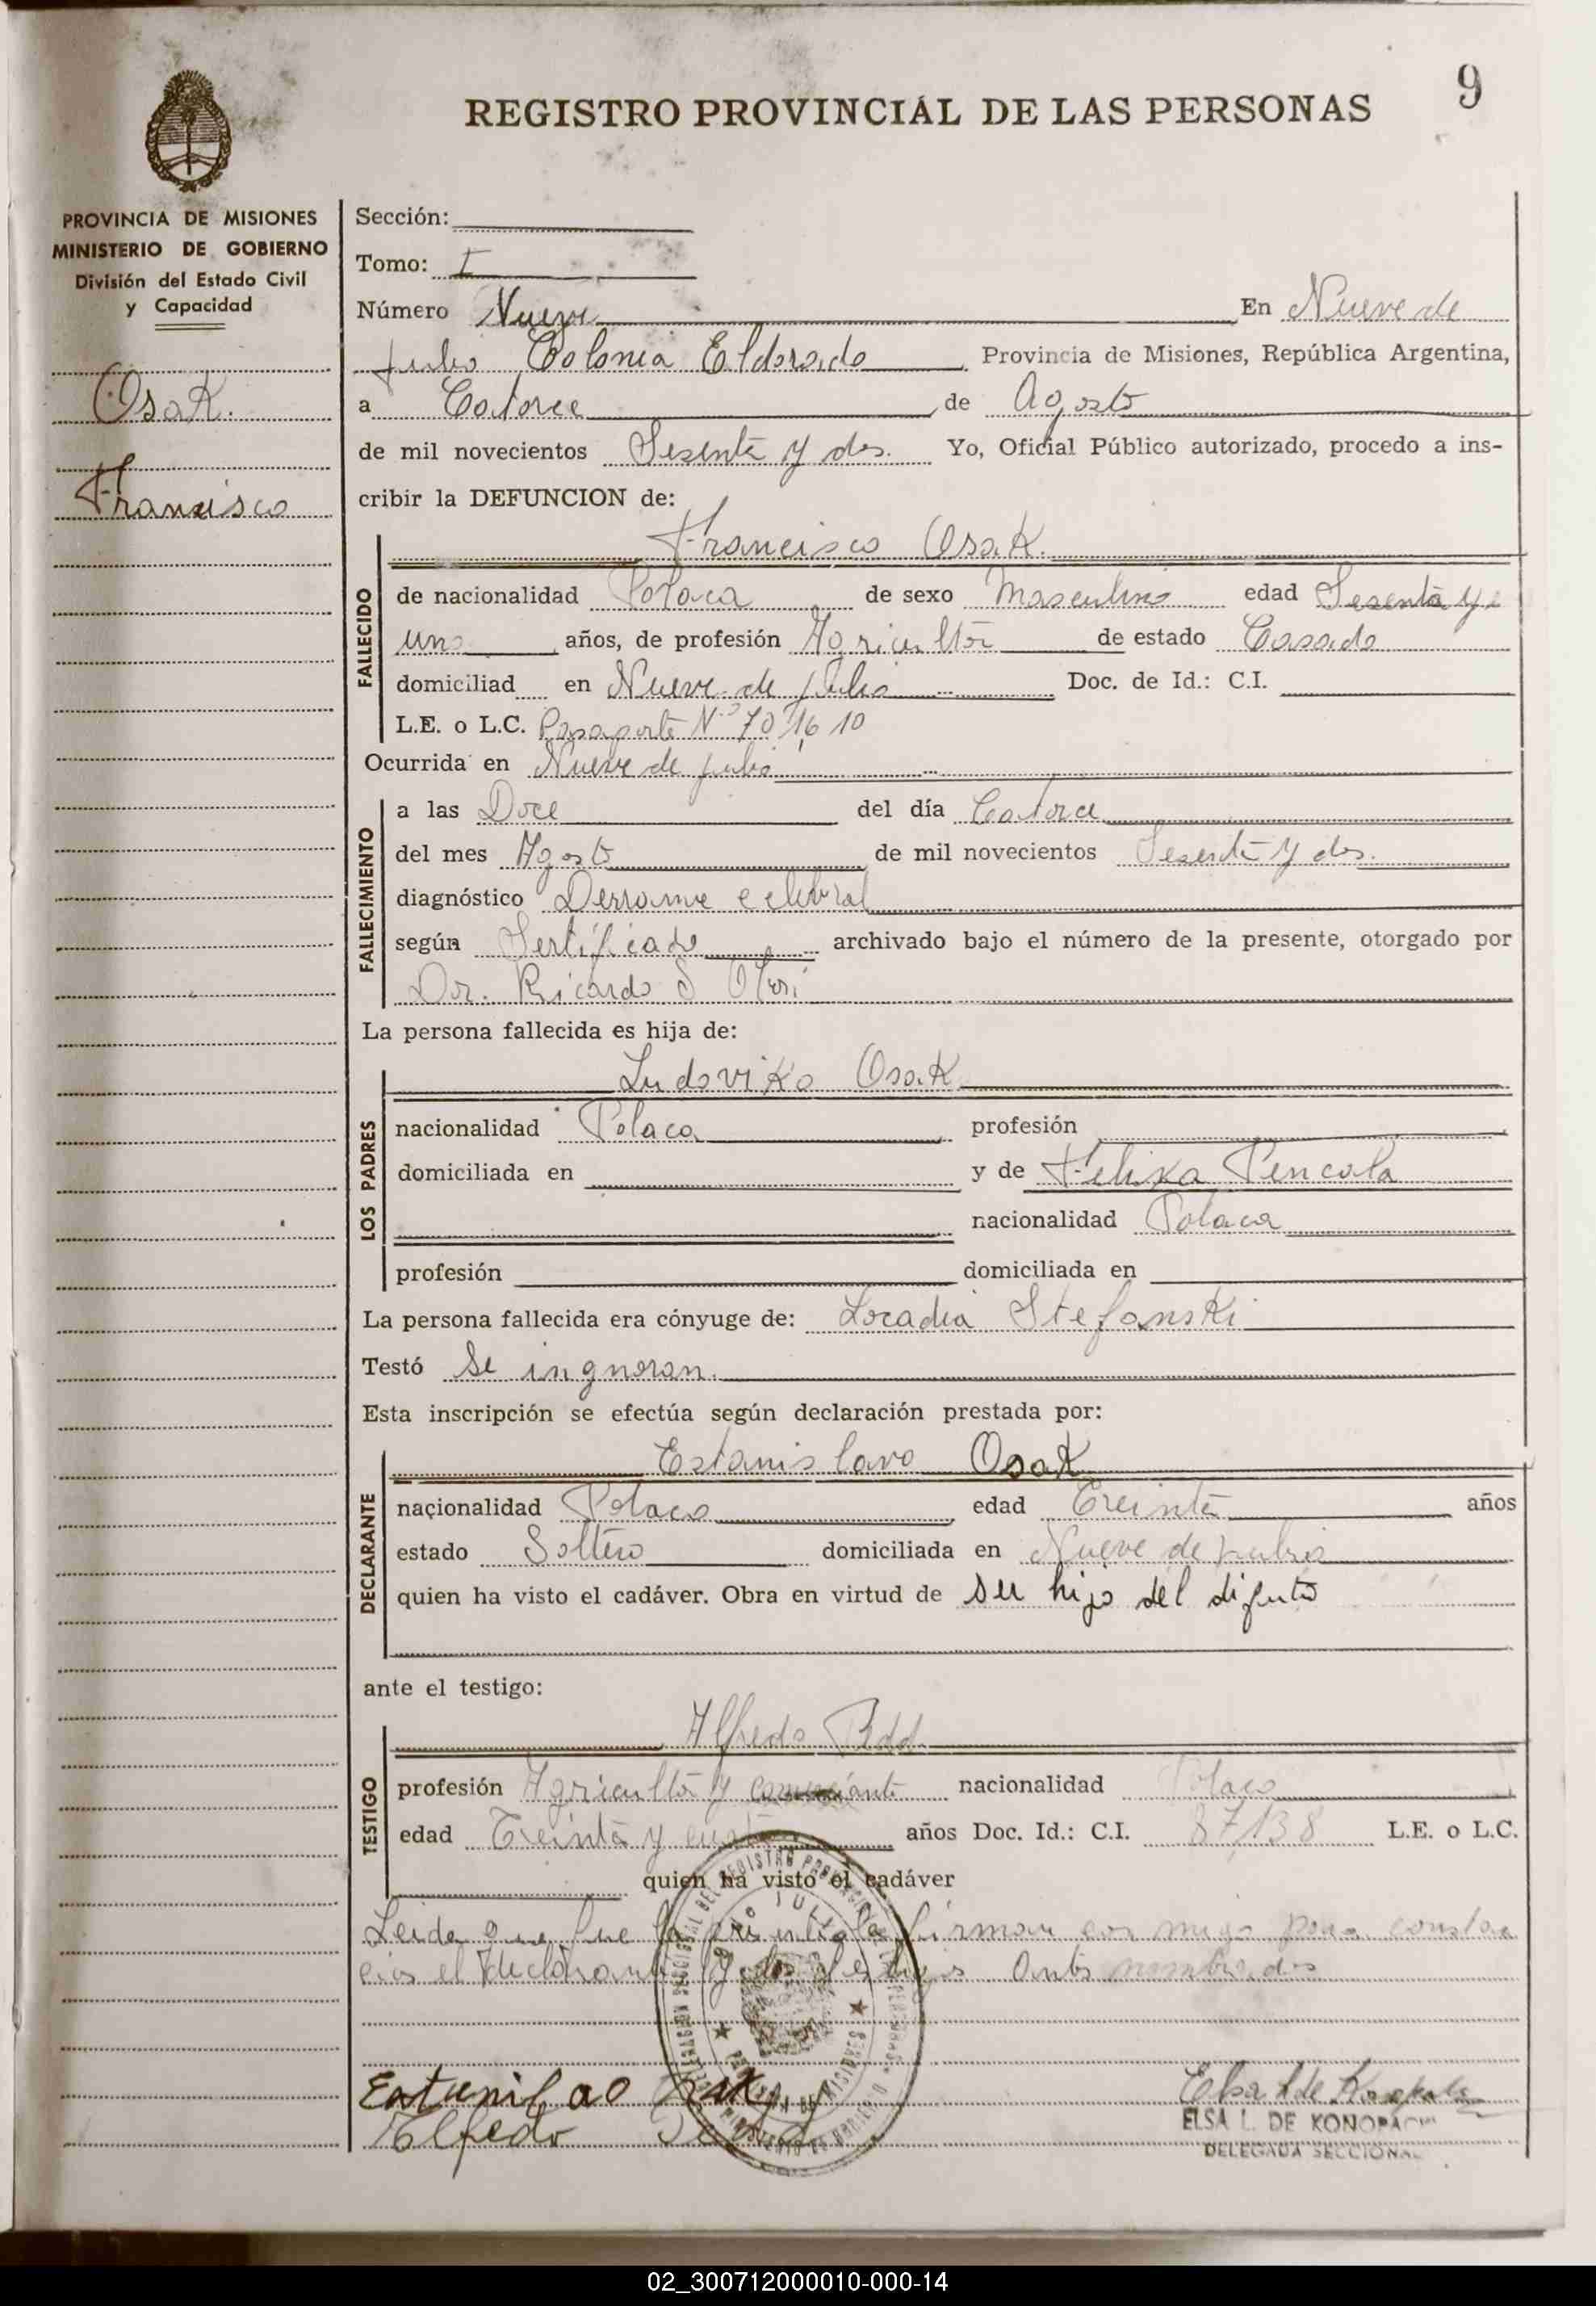 9
REGISTRO PROVINCIAL DE LAS PERSONAS
PROVINCIA DE MISIONES
MINISTERIO DE GOBIERNO
División del Estado Civil
y Capacidad
Osak.
Francisco
Sección:
Tomo: I
Número Nueve En Nueve de
julio Colonia Eldorado, Provincia de Misiones, República Argentina,
a Catorce, de Agosto
de mil novecientos Sesenta y dos. Yo, Oficial Público autorizado, procedo a ins-
cribir la DEFUNCION de:
Francisco Osak.
FALLECIDO
de nacionalidad Polaca de sexo Masculino edad Sesenta y
uno años, de profesión Agricultor de estado Casado
domiciliad en Nueve de Julio Doc. de Id.: C.I.
L.E. o L.C. Pasaporte Nº 701610
Ocurrida en Nueve de julio
FALLECIMIENTO
a las Doce del día Catorce
del mes Agosto de mil novecientos Sesenta y dos.
diagnóstico Derrame celebral
según Sertificado archivado bajo el número de la presente, otorgado por
Dr. Ricardo S
La persona fallecida es hija de:
Ludoviko Osak
LOS PADRES
nacionalidad Polaca profesión
domiciliada en y de Felixa Pencola
nacionalidad Polaca
profesión domiciliada en
La persona fallecida era cónyuge de: Locadia Stefanski
Testó Se ingnoran.
Esta inscripción se efectúa según declaración prestada por:
Estanislavo Osak
DECLARANTE
nacionalidad Polaco edad Treinta años
estado Soltero domiciliada en Nueve de julio
quien ha visto el cadáver. Obra en virtud de su hijo del difunto
ante el testigo:
Alfredo
TESTIGO
profesión Agricultor y comerciante nacionalidad Polaco
edad Treinta y años Doc. Id.: C.I. 87138 L.E. o L.C.
quien ha visto el cadáver
Leida que fue la presente la firman con migo para constan
cia el declarante y los testigos antes nombrados
Elsa L de
ELSA L. DE KONOPACKI
DELEGADA SECCIONAL
02_300712000010-000-14